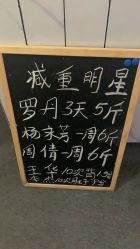 减重明星
罗丹3天5斤
杨宋芳一周6斤
周倩一周6斤
王华10次
10次